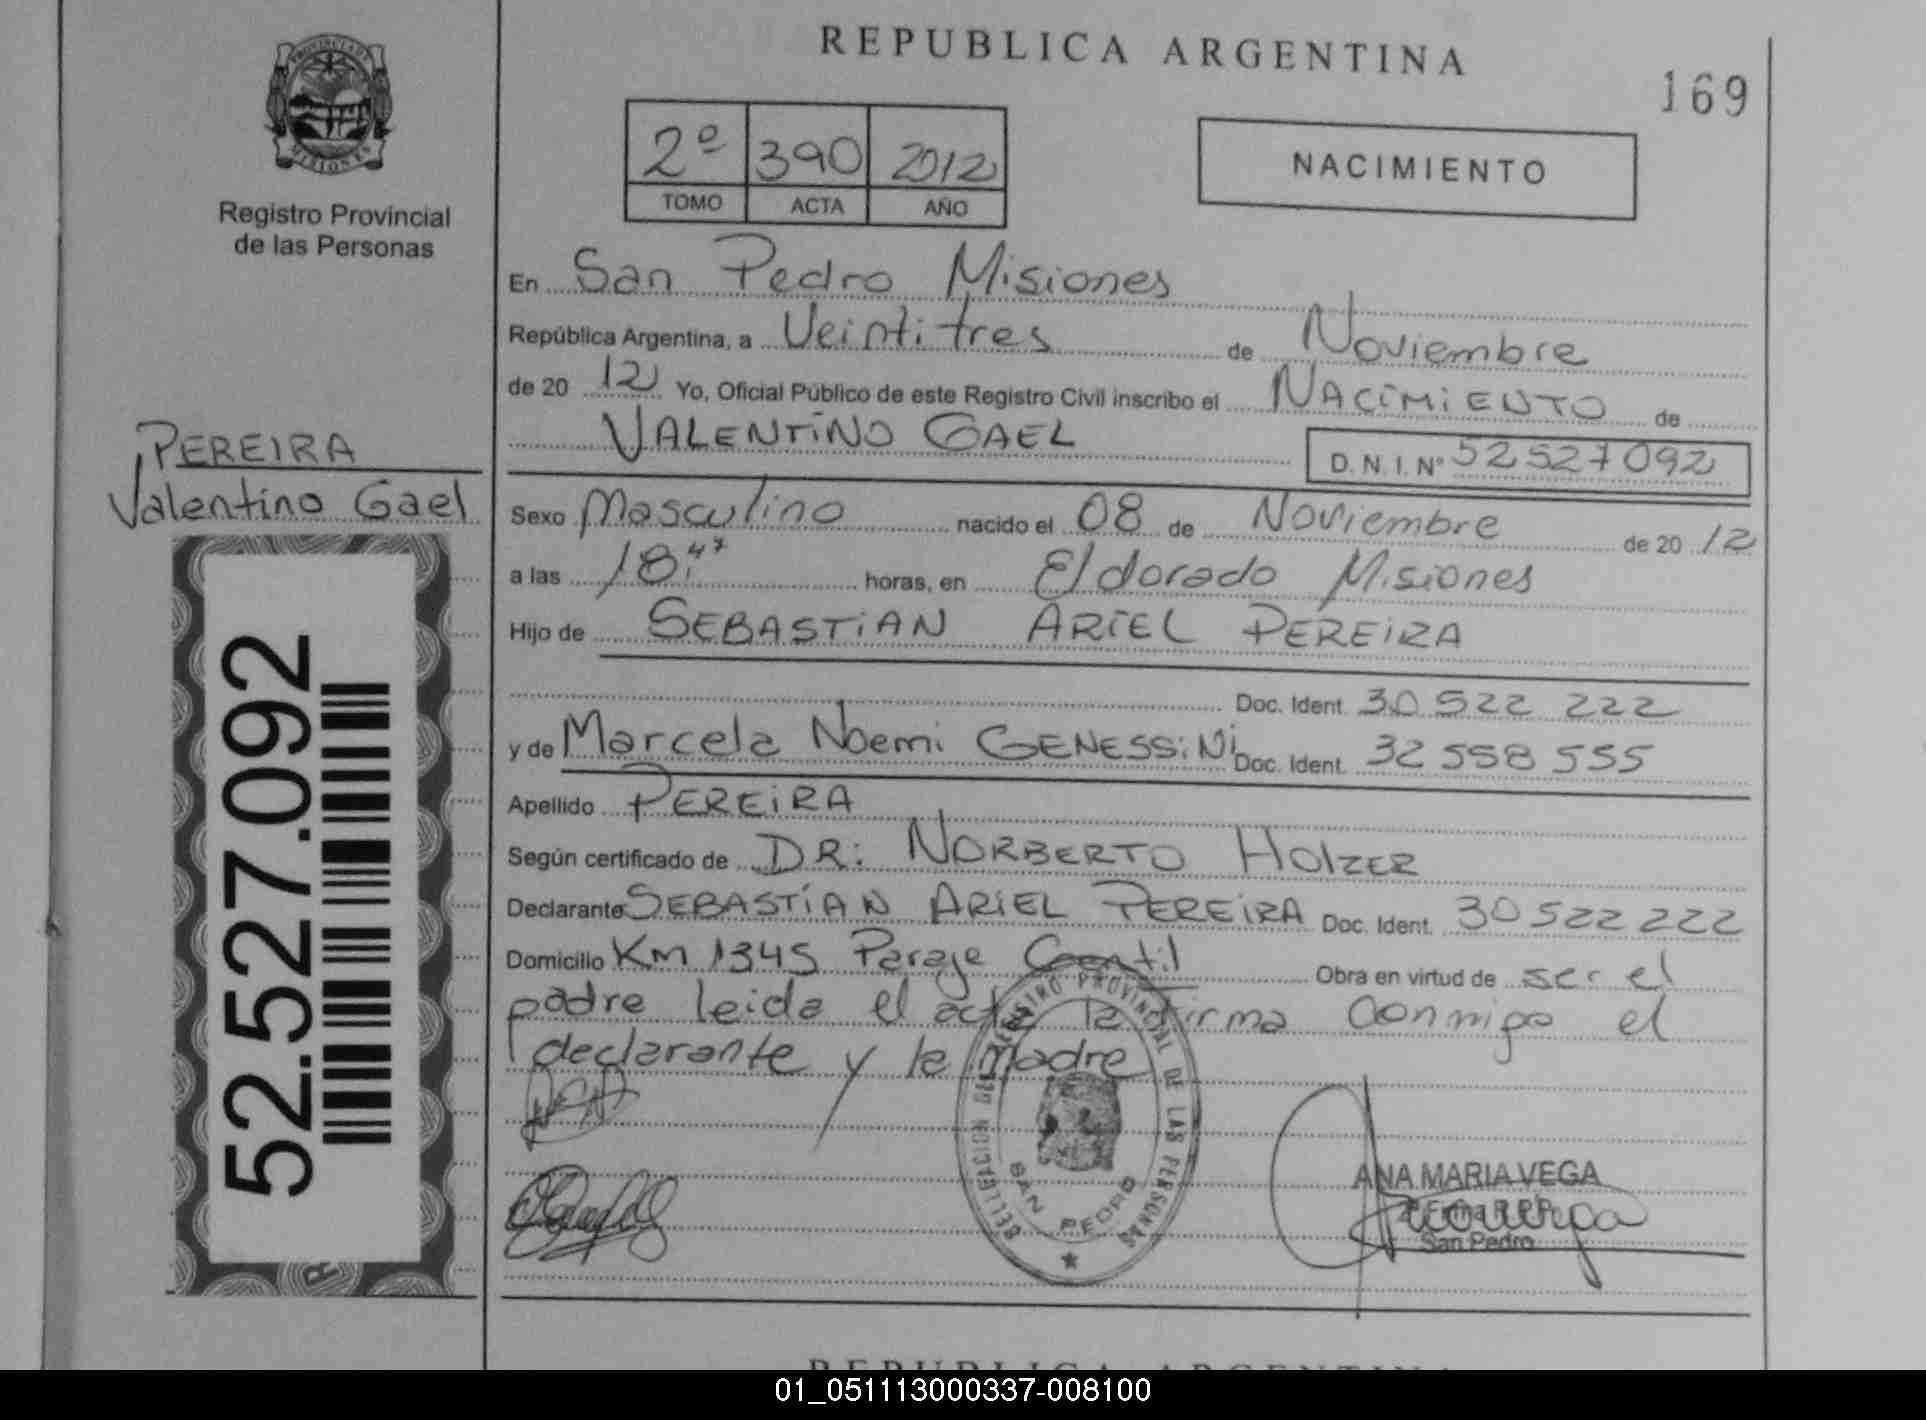 PROVINCIA DE
MISIONES
Registro Provincial
de las Personas
PEREIRA
Valentino Gael
52.527.092
R
REPUBLICA ARGENTINA
169
2º 390 2012
TOMO ACTA AÑO
NACIMIENTO
En San Pedro Misiones
República Argentina, a Veintitres de Noviembre
de 20 12 Yo, Oficial Público de este Registro Civil inscribo el NACIMIENTO de
VALENTINO GAEL D.N.I. Nº 52527092
Sexo Masculino nacido el 08 de Noviembre de 20 12
a las 18:47 horas, en Eldorado Misiones
Hijo de SEBASTIAN ARIEL PEREIRA
Doc. Ident. 30 522 222
y de Marcela Noemi GENESSINI Doc. Ident. 32 558 555
Apellido PEREIRA
Según certificado de DR: NORBERTO HOLZER
Declarante SEBASTIAN ARIEL PEREIRA Doc. Ident. 30 522 222
Domicilio Km 1345 Paraje Gentil Obra en virtud de ser el
padre leida el acta la firma conmigo el
declarante y la Madre
REGISTRO PROVINCIAL DE LAS PERSONAS
DELEGACION
SAN PEDRO
ANA MARIA VEGA
2º Firma R.P.P.
San Pedro
REPUBLICA ARGENTINA
01_051113000337-008100